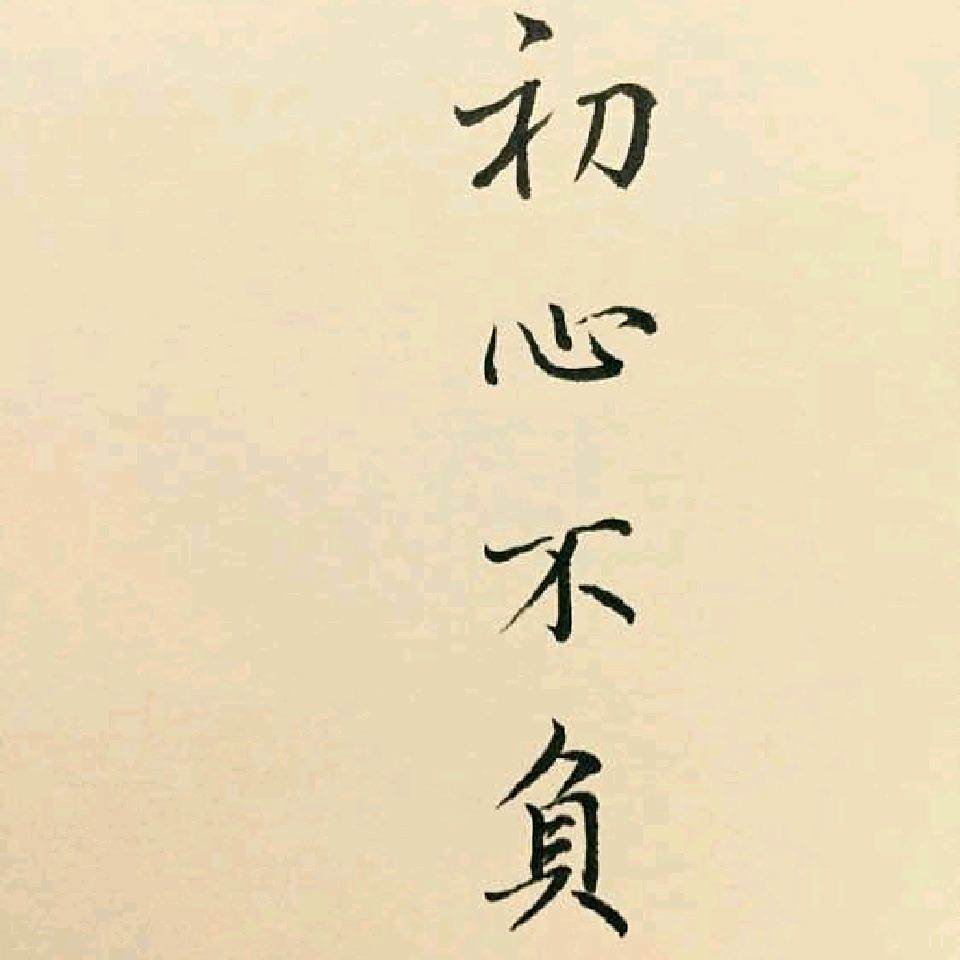 初心不負